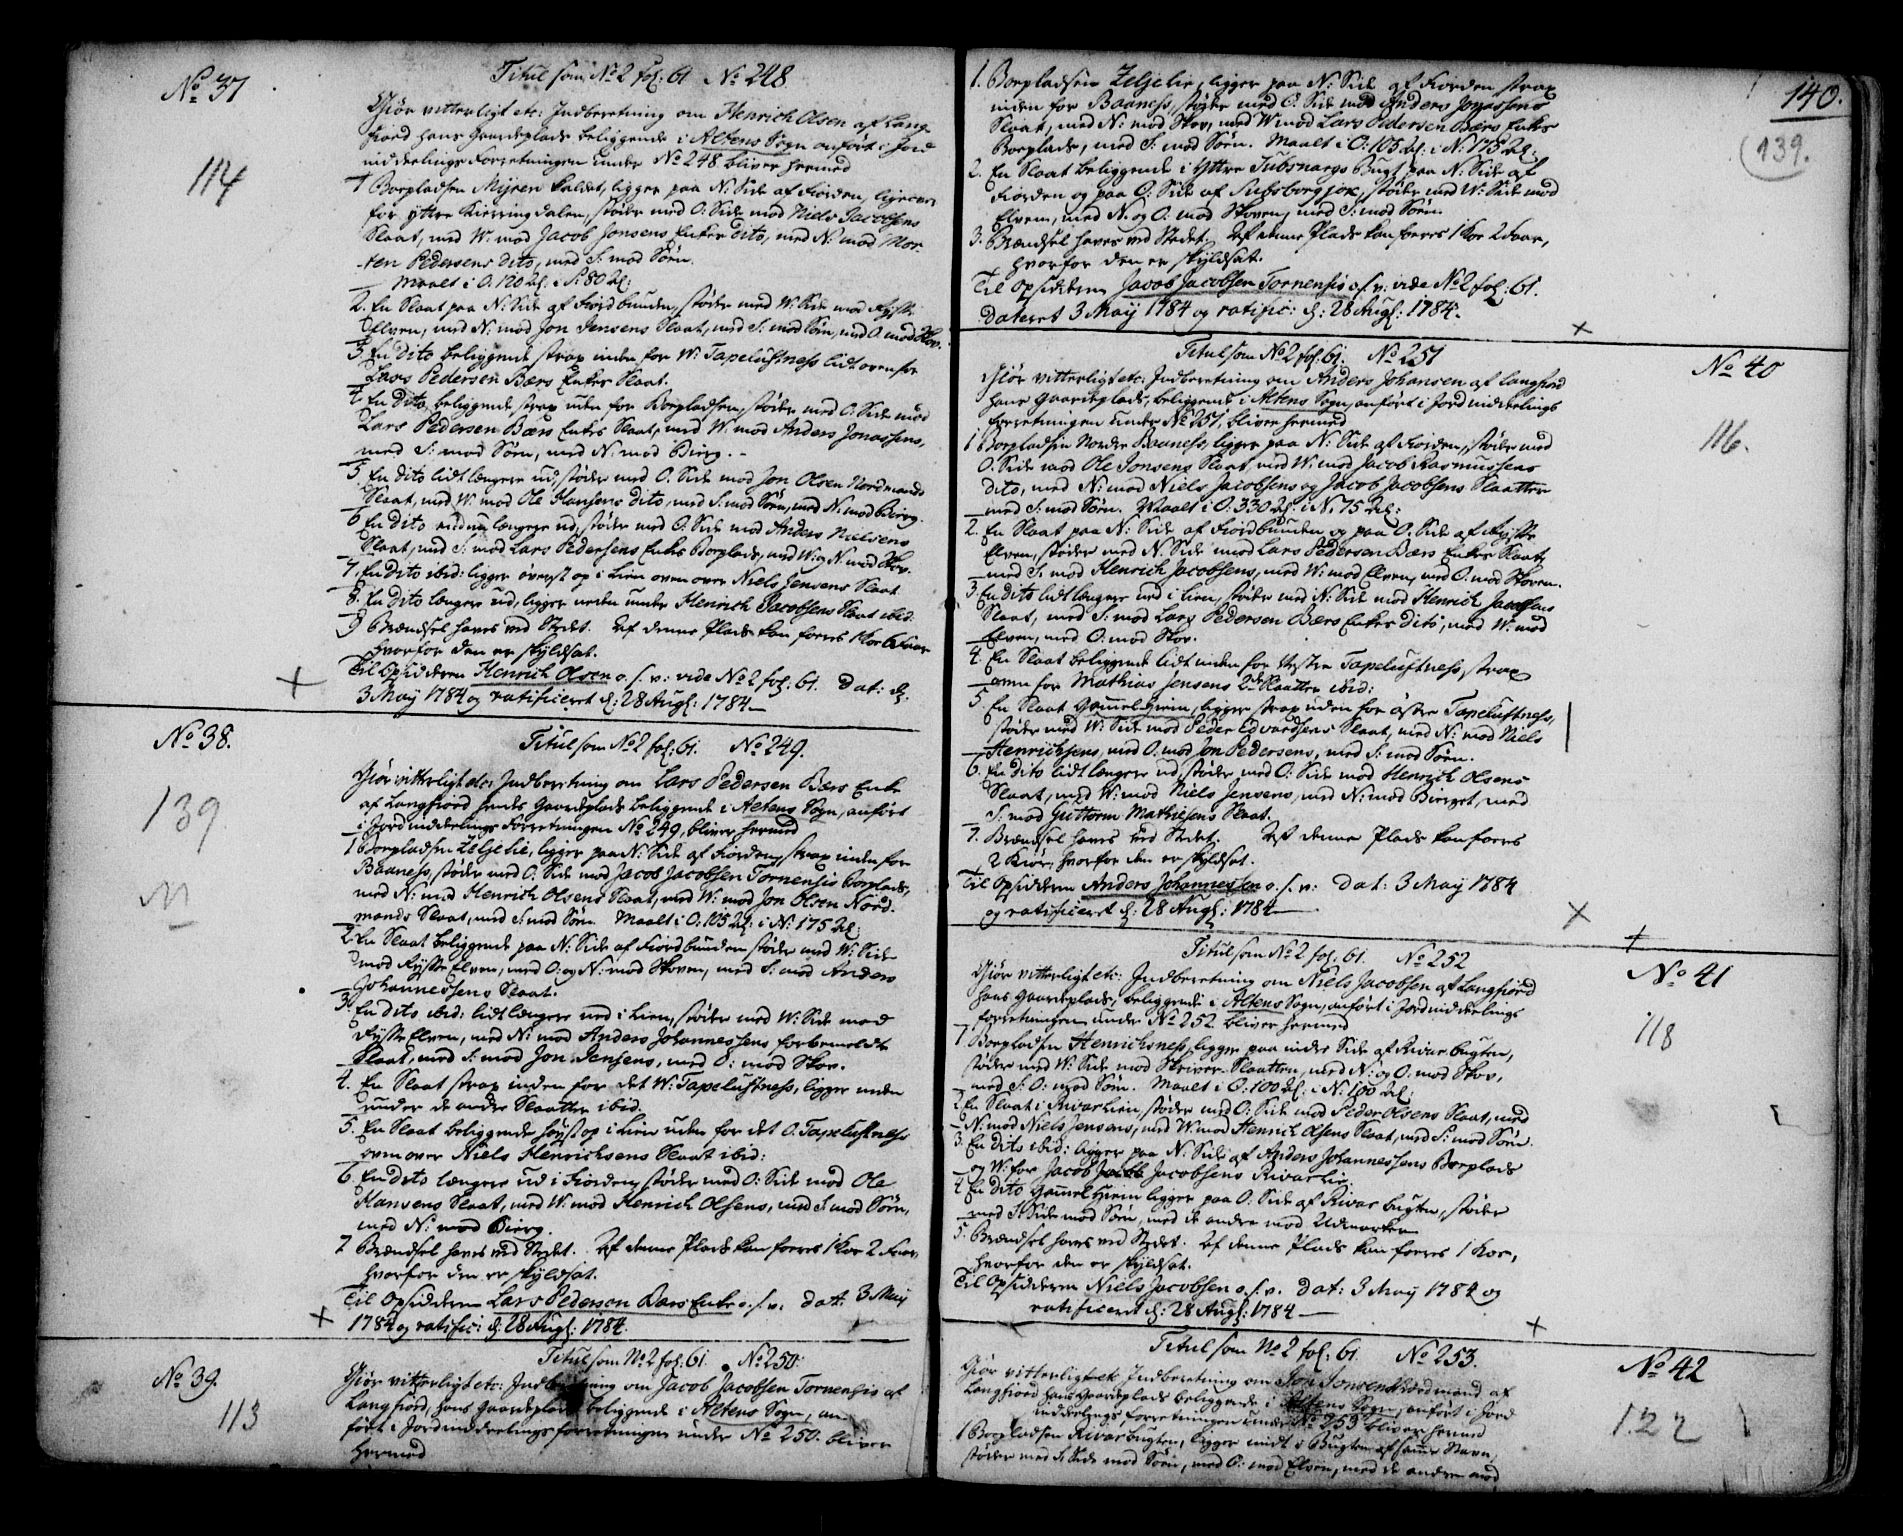 No 37
Titul som No 2 fol: 61 No 248
114
Giør vitterligt etc: Indberetning om Henrich Olsen af Lang-
fiord hans Gaardeplads beliggende i Altens Sogn anført i Jord
inddelings Forretningen under No 248 bliver hermed
1 Boepladsen Myren kaldet, ligger paa N: Side af Fiorden, ligeover
for yttre Kierringdalen, støder med O: Side mod Niels Jacobsens
Slaat, med W: mod Jacob Jonsens Enkes dito, med N: mod Mor-
ten Pedersens dito, med S: mod Søen.
Maalt i O: 120 Al: i S: 80 Al:
2. En Slaat paa N: Side af Fiordbunden, støder med W: Side mod Fysse
Elven, med N: mod Jon Jensens Slaat, med S: mod Søen, med O: mod Skov.
3. En dito beliggende strax inden for W: Tapeluftness lidt ovenfor
Lars Pedersen Bærs Enkes Slaat.
4. En dito, beliggende strax uden for Boepladsen, støder med O: Side mod
Lars Pedersen Bærs Enkes Slaat, med W: mod Anders Jonassens,
med S: mod Søen, med N: mod Bierg.
5. En dito lidt længere ud, støder med O: Side mod Jon Olsen Nordmands
Slaat, med W: mod Ole Hansens dito, med S: mod Søen, med N: mod Bierg.
6 En dito endnu længere ud, støder med O: Side mod Anders Nielsens
Slaat, med S: mod Lars Pedersens Enkes Boeplads, med W: og N: mod Skov.
7. En dito ibid: ligger øverst op i Lien oven over Niels Jensens Slaat
8. En dito længere ud, ligger neden under Henrich Jacobsens Slaat ibid:
9 Brændsel haves ved Stedet. Af denne Plads kan foeres 1 Koe 6 Faar
hvorfor den er skyldsat.
Til Opsidderen Henrich Olsen o. s. v: vide No 2 fol: 61. Dat: d:
3 May 1784 og ratificeret d: 28 Aug: 1784
No 38.
Titul som No 2 fol: 61. No 249.
139
M
Giør vitterligt etc: Indberetning om Lars Pedersen Bærs Enke
af Langfiord hendes Gaardeplads beliggende i Altens Sogn, anført
i Jord inddelings Forretningen No 249, bliver hermed
1 Boepladsen Zeljelie, ligger paa N: Side af Fiorden, strax inden for
Baaness, støder med O: Side mod Jacob Jacobsen Tornensis Boeplads,
med N: mod Henrich Olsens Slaat, med W: mod Jon Olsen Nord-
mands Slaat, med S: mod Søen. Maalt i O: 105 Al: i N: 175 Al:
2. En Slaat beliggende paa N: Side af Fiordbunden støder med W: Side
mod Fysse Elven, med O: og N: mod Skoven, med S: mod Anders
Johannessens Slaat.
3. En dito ibid: lidt længere ned i Lien, støder med W: Side mod
Fysse Elven, med N: mod Anders Johannessens forbemeldte
Slaat, med S: mod Jon Jensens, med O: mod Skov.
4. En Slaat strax inden for det W: Tapeluftness, ligger neden
under de andre Slaatter ibid.
5. En Slaat beliggende høyst op i Lien uden for det O. Tapeluftness
oven over Niels Henrichsens Slaat ibid:
6. En dito længere ud i Fiorden, støder med O: Side mod Ole
Hansens Slaat, med W: mod Henrich Olsens, med S: mod Søen,
med N: mod Bierg.
7 Brændsel haves ved Stedet. Af denne Plads kan foeres 1 Koe 2 Faar
hvorfor den er skyldsat.
Til Opsidderen Lars Pedersen Bærs Enke o. s. v. dat: 3 May
1784 og ratific: d: 28 Aug: 1784.
No 39.
Titul som No 2 fol: 61. No 250.
113
Giør vitterligt etc: Indberetning om Jacob Jacobsen Tornensis af
Langfiord, hans Gaardeplads beliggende i Altens Sogn, an-
ført i Jordinddelings forretningen under No 250. bliver
hermed
140.
(139.
1. Boepladsen Zeljelie, ligger paa N: Side af Fiorden strax
inden for Baaness, støder med O: Side mod Anders Jonassens
Slaat, med N: mod Skov, med W: mod Lars Pedersen Bærs Enkes
Boeplads, med S: mod Søen. Maalt i O: 105 Al: i N: 175 Al:
2. En Slaat beliggende i Yttre Subsnargs Bugt paa N: Side af
Fiorden og paa O: Side af Subsborgjok, støder med W: Side mod
Elven, med N. og O: mod Skoven, med S: mod Søen.
3. Brændsel haves ved Stedet. Af denne Plads kan foeres 1 Koe 2 Faar,
hvorfor den er skyldsat.
Til Opsidderen Jacob Jacobsen Tornensis o. s. v: vide No 2 fol: 61.
dateret 3 May 1784 og ratific: d: 28 Aug: 1784.
Titul som No 2 fol: 61. No 251
No 40
116.
Giør vitterligt etc: Indberetning om Anders Johansen af Langfiord
hans Gaardeplads, beliggende i Altens Sogn, anført i Jord inddelings
forretningen under No 251, bliver hermed
1 Boepladsen Nordre Baaness, ligger paa N: Side af Fiorden, støder med
O: Side mod Ole Jonsens Slaat, med W: mod Jacob Rasmussens
dito, med N: mod Niels Jacobsens og Jacob Jacobsens Slaatter
med S: mod Søen. Maalt i O: 330 Al: i N. 75 Al:
2. En Slaat paa N: Side af Fiordbunden og paa O. Side af Fysse
Elven, støder med N. Side mod Lars Pedersen Bærs Enkes Slaat,
med S: mod Henrich Jacobsens, med W: mod Elven, med O: mod Skoven.
3. En dito lidt længere ned i Lien, støder med N: Side mod Henrich Jacobsens
Slaat, med S: mod Lars Pedersen Bærs Enkes dito, med W: mod
Elven, med O: mod Skov.
4. En Slaat beliggende lidt inden for Vestre Tapeluftness, strax
oven for Mathias Jensens 2de Slaatter ibid:
5. En Slaat Gammel Hiem, ligger strax uden for østre Tapeluftness,
støder med W: Side mod Peder Edvardsens Slaat, med N: mod Niels
Henrichsens, med O: mod Jon Pedersens, med S: mod Søen.
6. En dito lidt længere ud, støder med O: Side mod Henrich Olsens
Slaat, med W: mod Niels Jensens, med N: mod Bierget, med
S: mod Guttorm Mathiesens Slaat.
7. Brændsel haves ved Stedet. Af denne Plads kan foeres
2 Kiør, hvorfor den er skyldsat.
Til Opsidderen Anders Johannessen o. s. v: Dat: 3 May 1784
og ratificeret d: 28 Aug: 1784
Titul som No 2 fol: 61. No 252
No 41
118
Giør vitterligt etc: Indberetning om Niels Jacobsen af Langfiord
hans Gaardeplads, beliggende i Altens Sogn, anført i Jordinddelings
forretningen under No 252 bliver hermed
1 Boepladsen Henrichsness, ligger paa indre Side af Rivarbugten,
støder med W: Side mod Skriver-Slaatten, med N: og O: mod Skov,
med S: O: mod Søen. Maalt i O: 100 Al: i N: 100 Al:
2 En Slaat i Rivarlien, støder med O: Side mod Peder Olsens Slaat, med
N: mod Niels Jensens, med W: mod Henrich Olsens Slaat, med S: mod Søen.
3. En dito ibid: ligger paa N: Side af Anders Johannessens Boeplads
og W: for Jacob Jacobsens Rivarlie.
4 En dito Gammel Hiem ligger paa O: Side af Rivar bugten, støder
med S: Side mod Søen, med de andre mod Udmarken
5. Brændsel haves ved Stedet. Af denne Plads kan foeres 1 Koe,
hvorfor den er skyldsat.
Til Opsidderen Niels Jacobsen o. s. v. Dat: 3 May 1784 og
ratificeret d: 28 Aug: 1784
Titul som No 2 fol: 61. No 253.
No 42
122
Giør vitterligt etc Indberetning om Jon Jonsen Nordmand af
Langfiord hans Gaardeplads beliggende i Altens Sogn, anført i Jord
inddelings forretningen under No 253 bliver hermed
1 Boepladsen Rivarbugten, ligger midt i Bugten af samme Navn,
støder med S: Side mod Søen, med O: mod Elven, med de andre mod